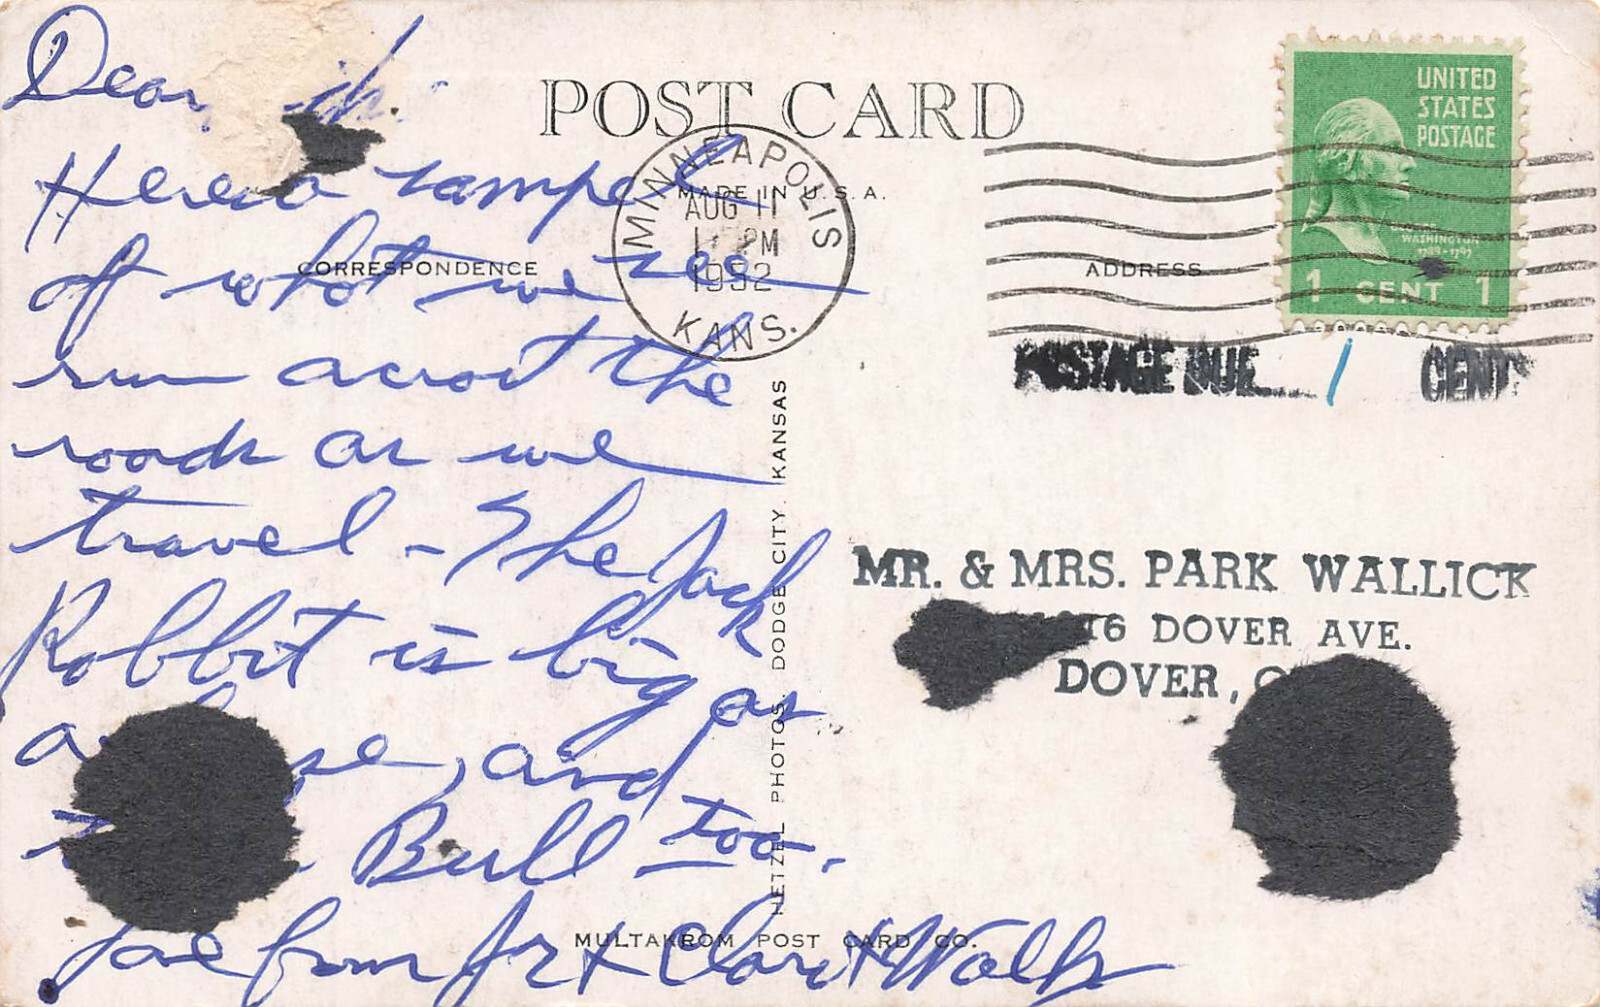 Dear
Here's a sample
of what we see
run across the
roads as we
travel - The Jack
Rabbit is big as
a se, and
Bull too.
Love from Jr & Clara & Wally
POST CARD
MADE IN U.S.A.
CORRESPONDENCE
ADDRESS
MINNEAPOLIS
AUG 11
PM
1952
KANS.
UNITED
STATES
POSTAGE
WASHINGTON
1789-1797
1 CENT 1
POSTAGE DUE 1 CENT
MR. & MRS. PARK WALLICK
16 DOVER AVE.
DOVER,
NETZEL PHOTOS, DODGE CITY, KANSAS
MULTAKROM POST CARD CO.